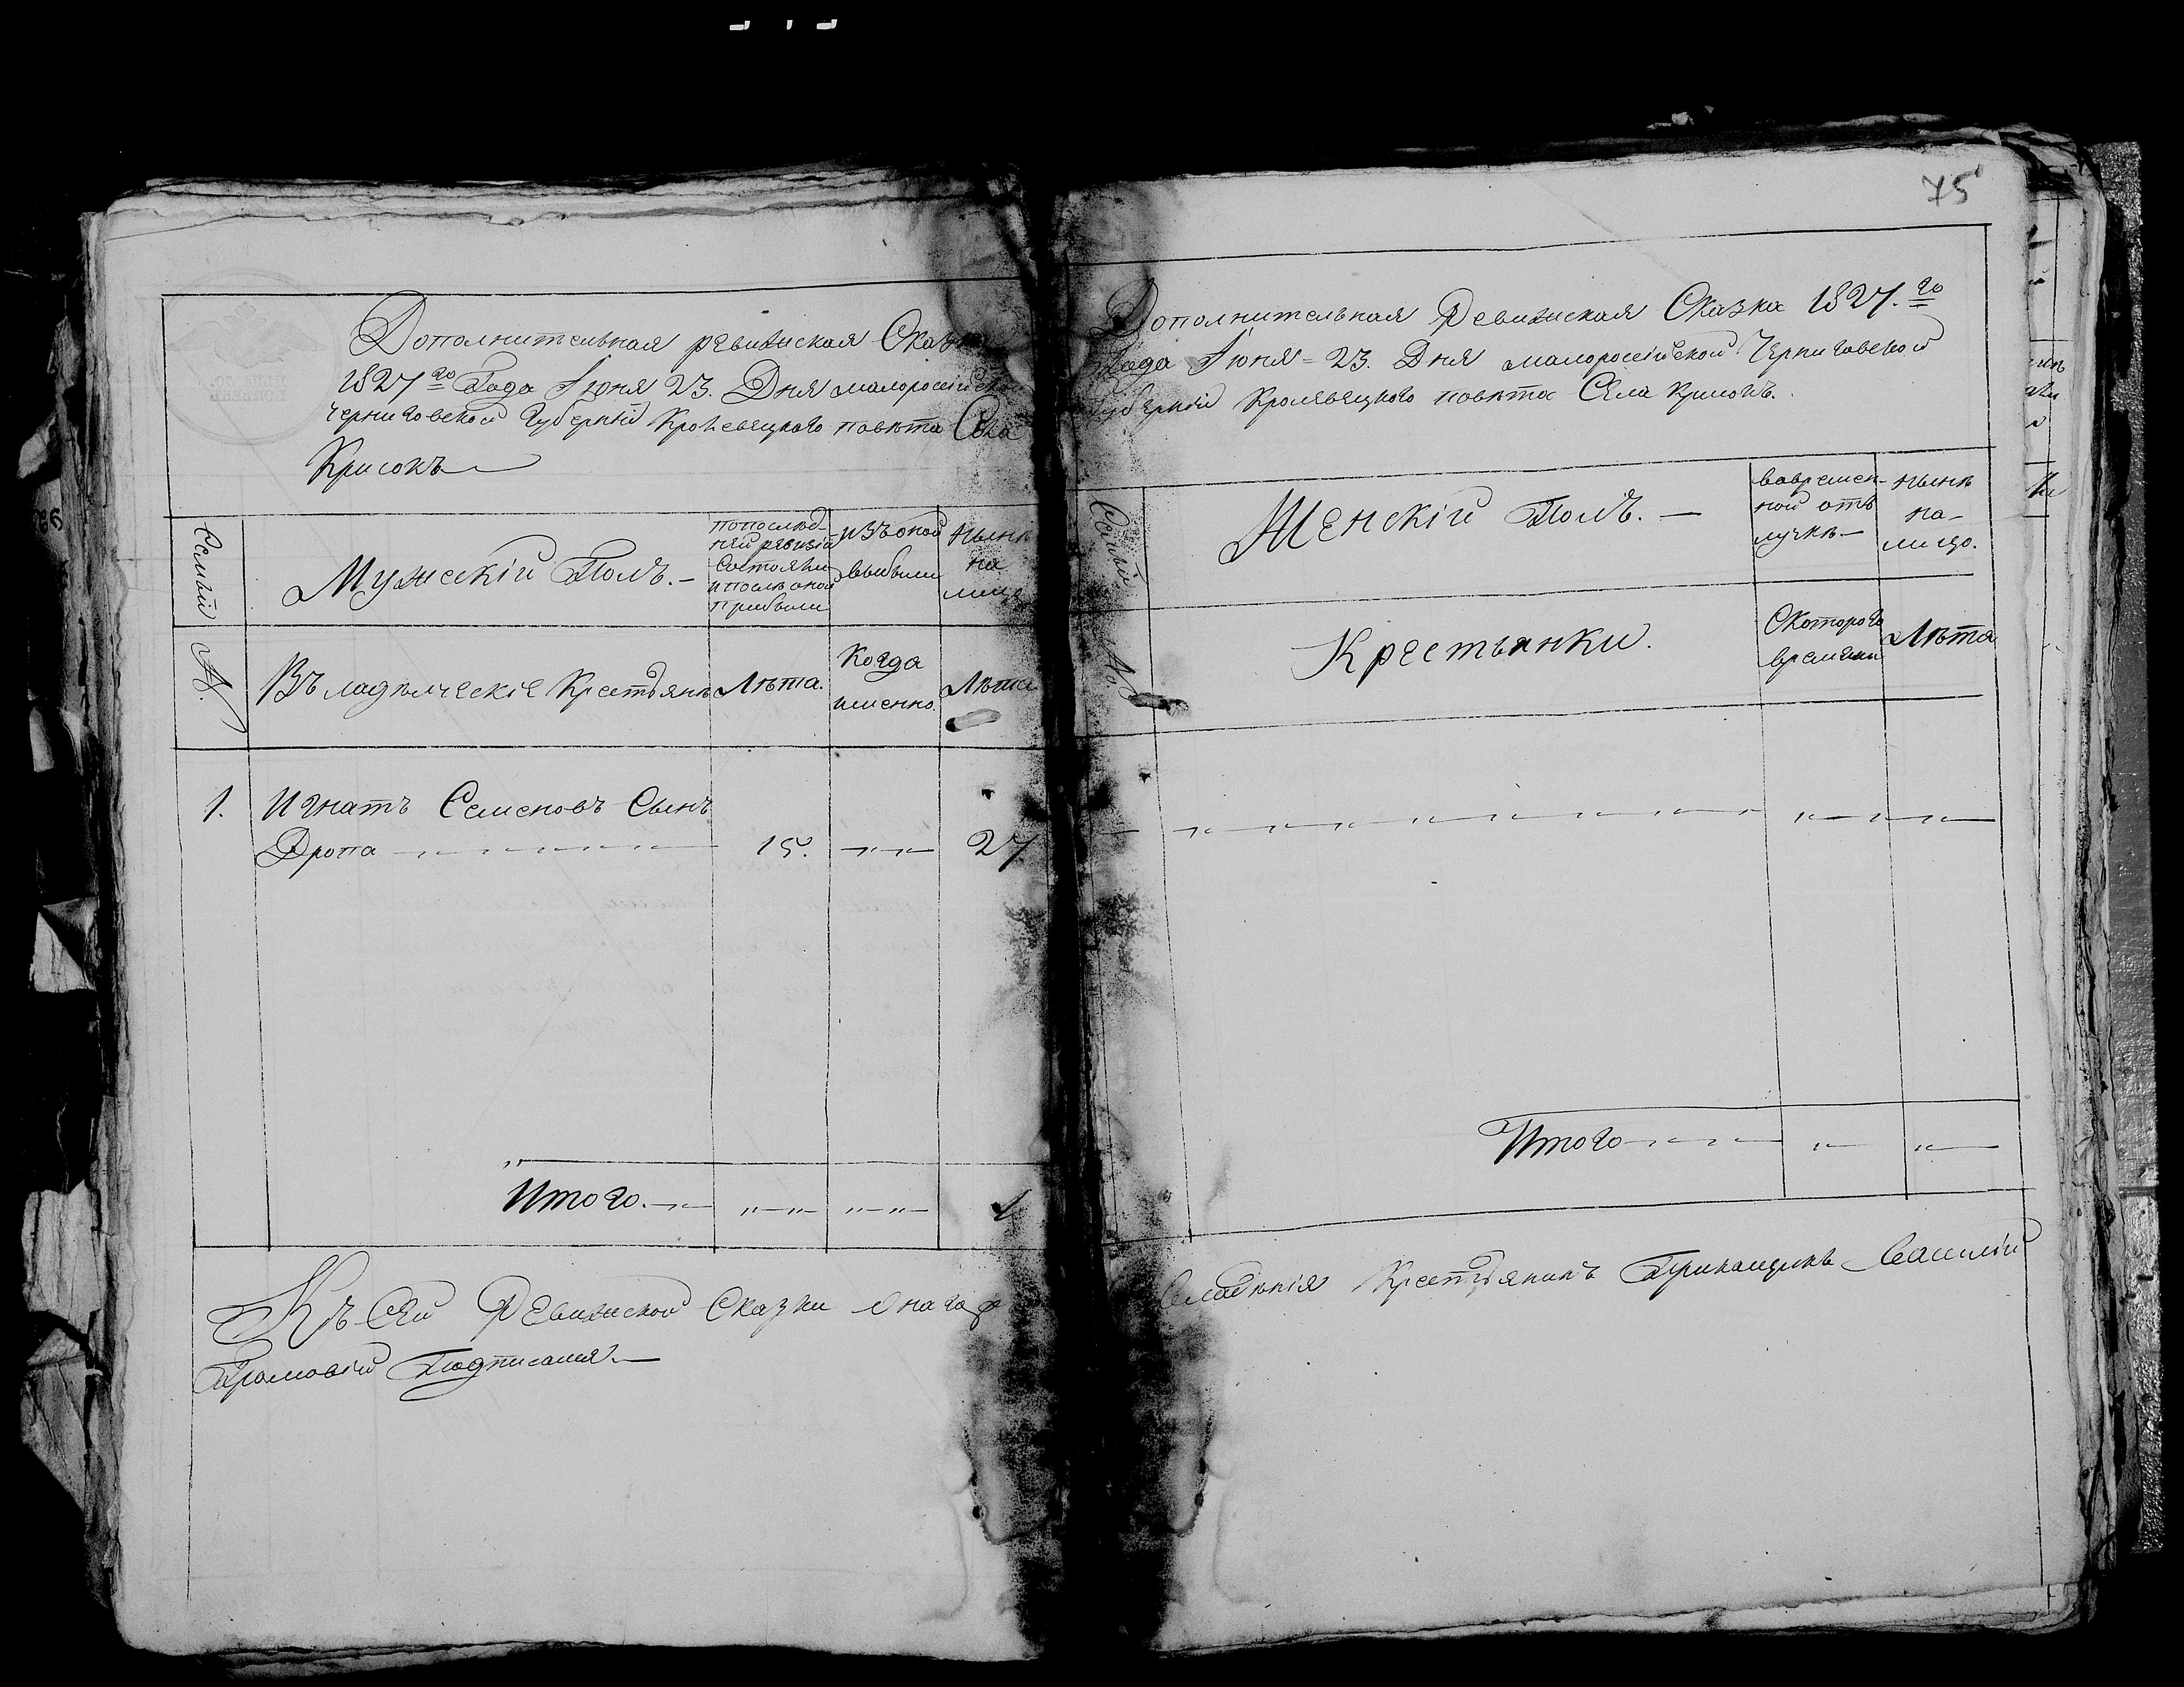 75
Дополнительная ревизская Сказка
1827го Года Іюня 23. Дня малоросiйской
черниговской Губернiй Кролевецкого повѣта Села
Крисокъ
Семьи №.
Мужескiй Полъ. —
попослѣд-
ней ревизiи
Состояли
и послѣ оной
прибыли
изъ оной
выбыли
нынѣ
на
лицо
Владѣлческiе Крестьяне
Лѣта.
Когда
именно.
Лѣта
1. Игнатъ Семеновъ Сынъ
Дропа 15. 27
Итого. 1
Къ Сей Ревизской Сказки онаго
Подписался. —
Дополнительная Ревизская Сказка 1827.го
Года Іюня = 23. Дня малоросiйской Черниговской
Губернiй Кролевецкого повѣта Села Крисокъ.
Семьи №
Женскiй Полъ. —
вовремен-
ной отъ
лучкѣ —
нынѣ
на-
лицо.
Крестьянки.
Скоторого
времени
Лѣта
Итого
владѣнiя Крестьянинъ Прикащикъ Василiй